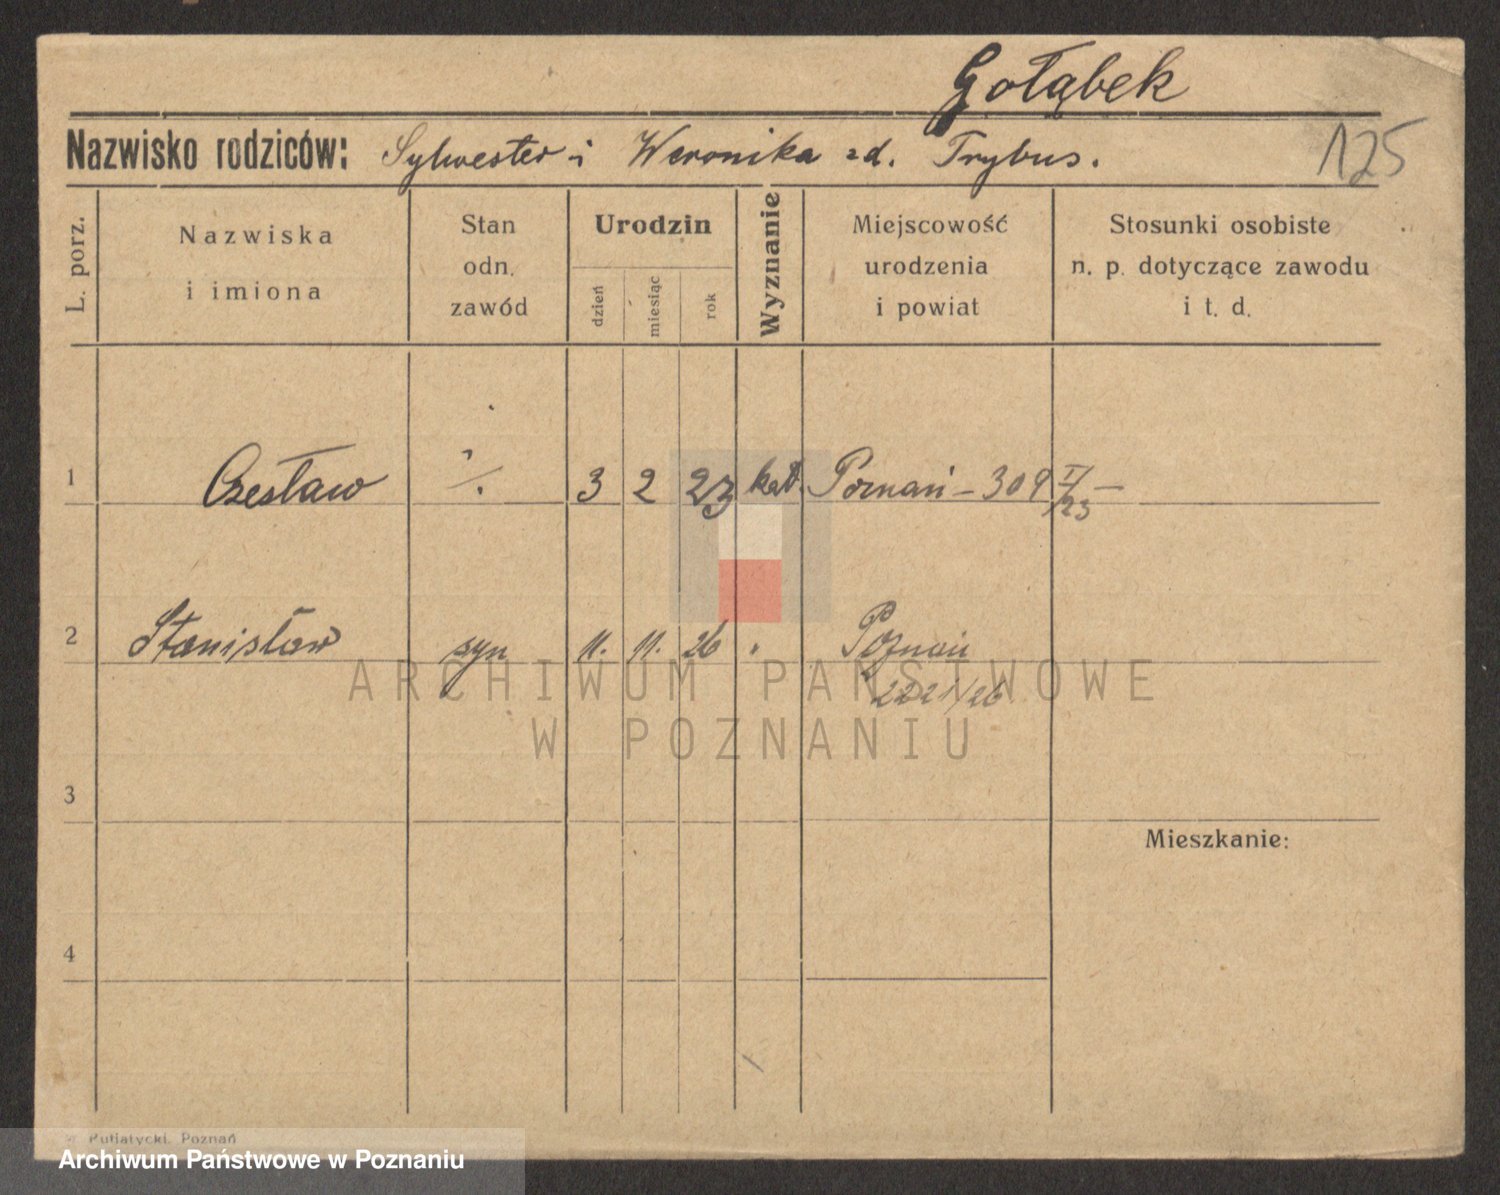 Gołąbek
Nazwisko rodziców: Sylwester i Weronika zd. Trybus.
125
L. porz.
Nazwiska
i imiona
Stan
odn.
zawód
Urodzin
dzień
miesiąc
rok
Wyznanie
Miejscowość
urodzenia
i powiat
Stosunki osobiste
n. p. dotyczące zawodu
i t. d.
1 Czesław ·/. 3 2 23 kat. Poznań – 309 I/23 –
2 Stanisław syn 11. 11. 26 " Poznań
2221/26
ARCHIWUM PAŃSTWOWE
W POZNANIU
3
Mieszkanie:
4
Putiatycki, Poznań
Archiwum Państwowe w Poznaniu